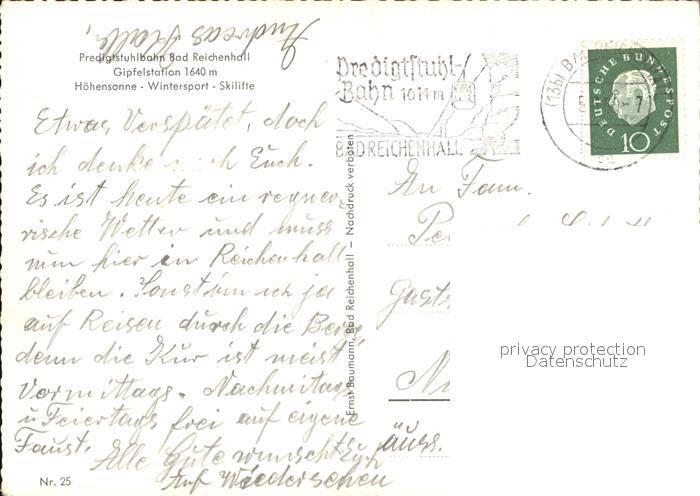 Andreas
Predigtstuhlbahn Bad Reichenhall
Gipfelstation 1640 m
Höhensonne - Wintersport - Skilifte
Etwas Verspätet, doch
ich denke auch Euch.
Es ist heute ein regner-
rische Wetter und muss
nun hier in Reichenhall
bleiben. Sonst bin ich ja
auf Reisen durch die Berg
denn die Kur ist meist
Vormittags. Nachmitags
u Feiertags frei auf eigene
Faust.
Alle Gute wünscht Euch
Auf Wiedersehen
Nr. 25
Ernst Baumann, Bad Reichenhall — Nachdruck verboten
Predigtstuhl-
Bahn 1614 m
BAD REICHENHALL
(13b) BAD
DEUTSCHE BUNDESPOST
10
An Fam.
Gasts
privacy protection
Datenschutz